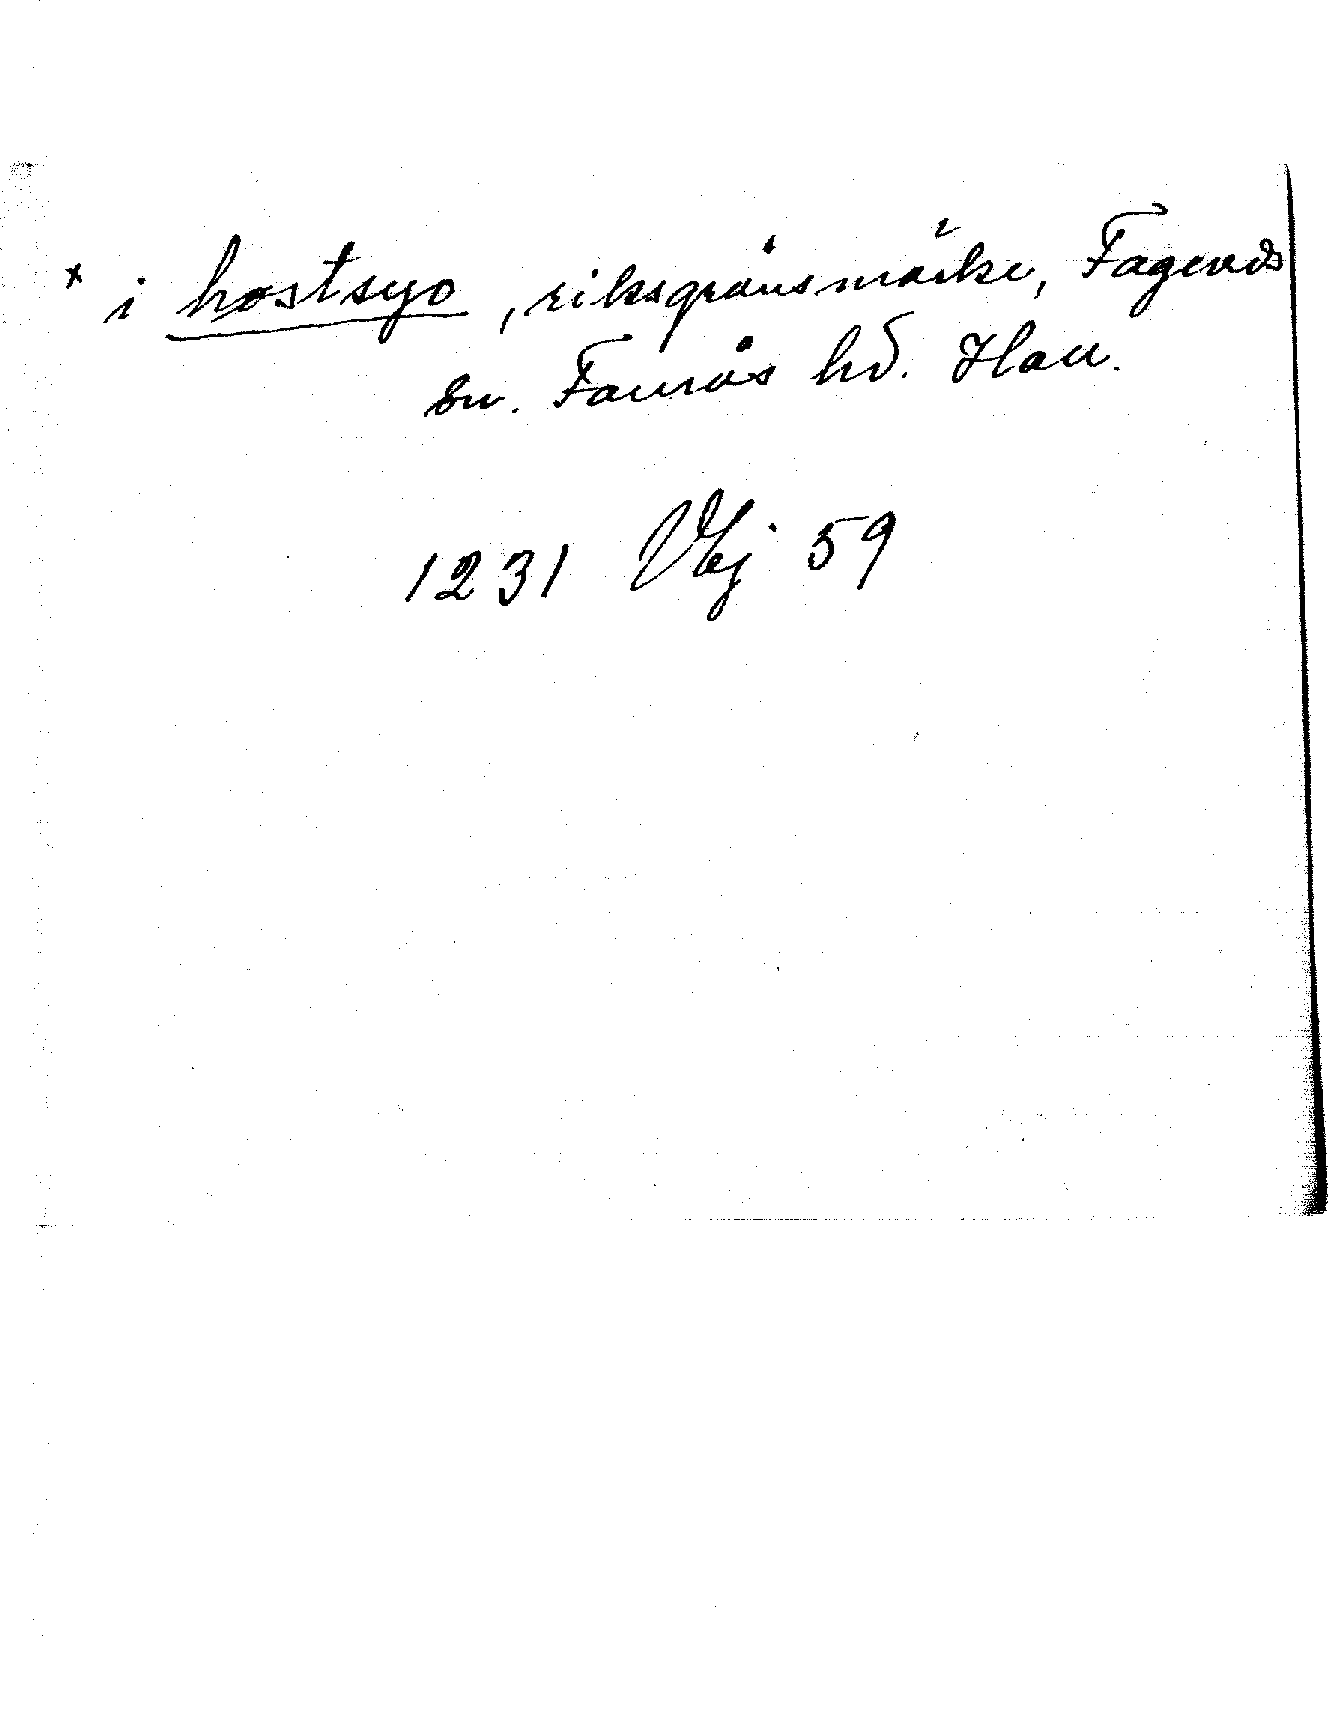 * i hostsyo, riksgränsmärke, Fagereds
sn. Faurås hd. Hall.
1231 Vbj 59